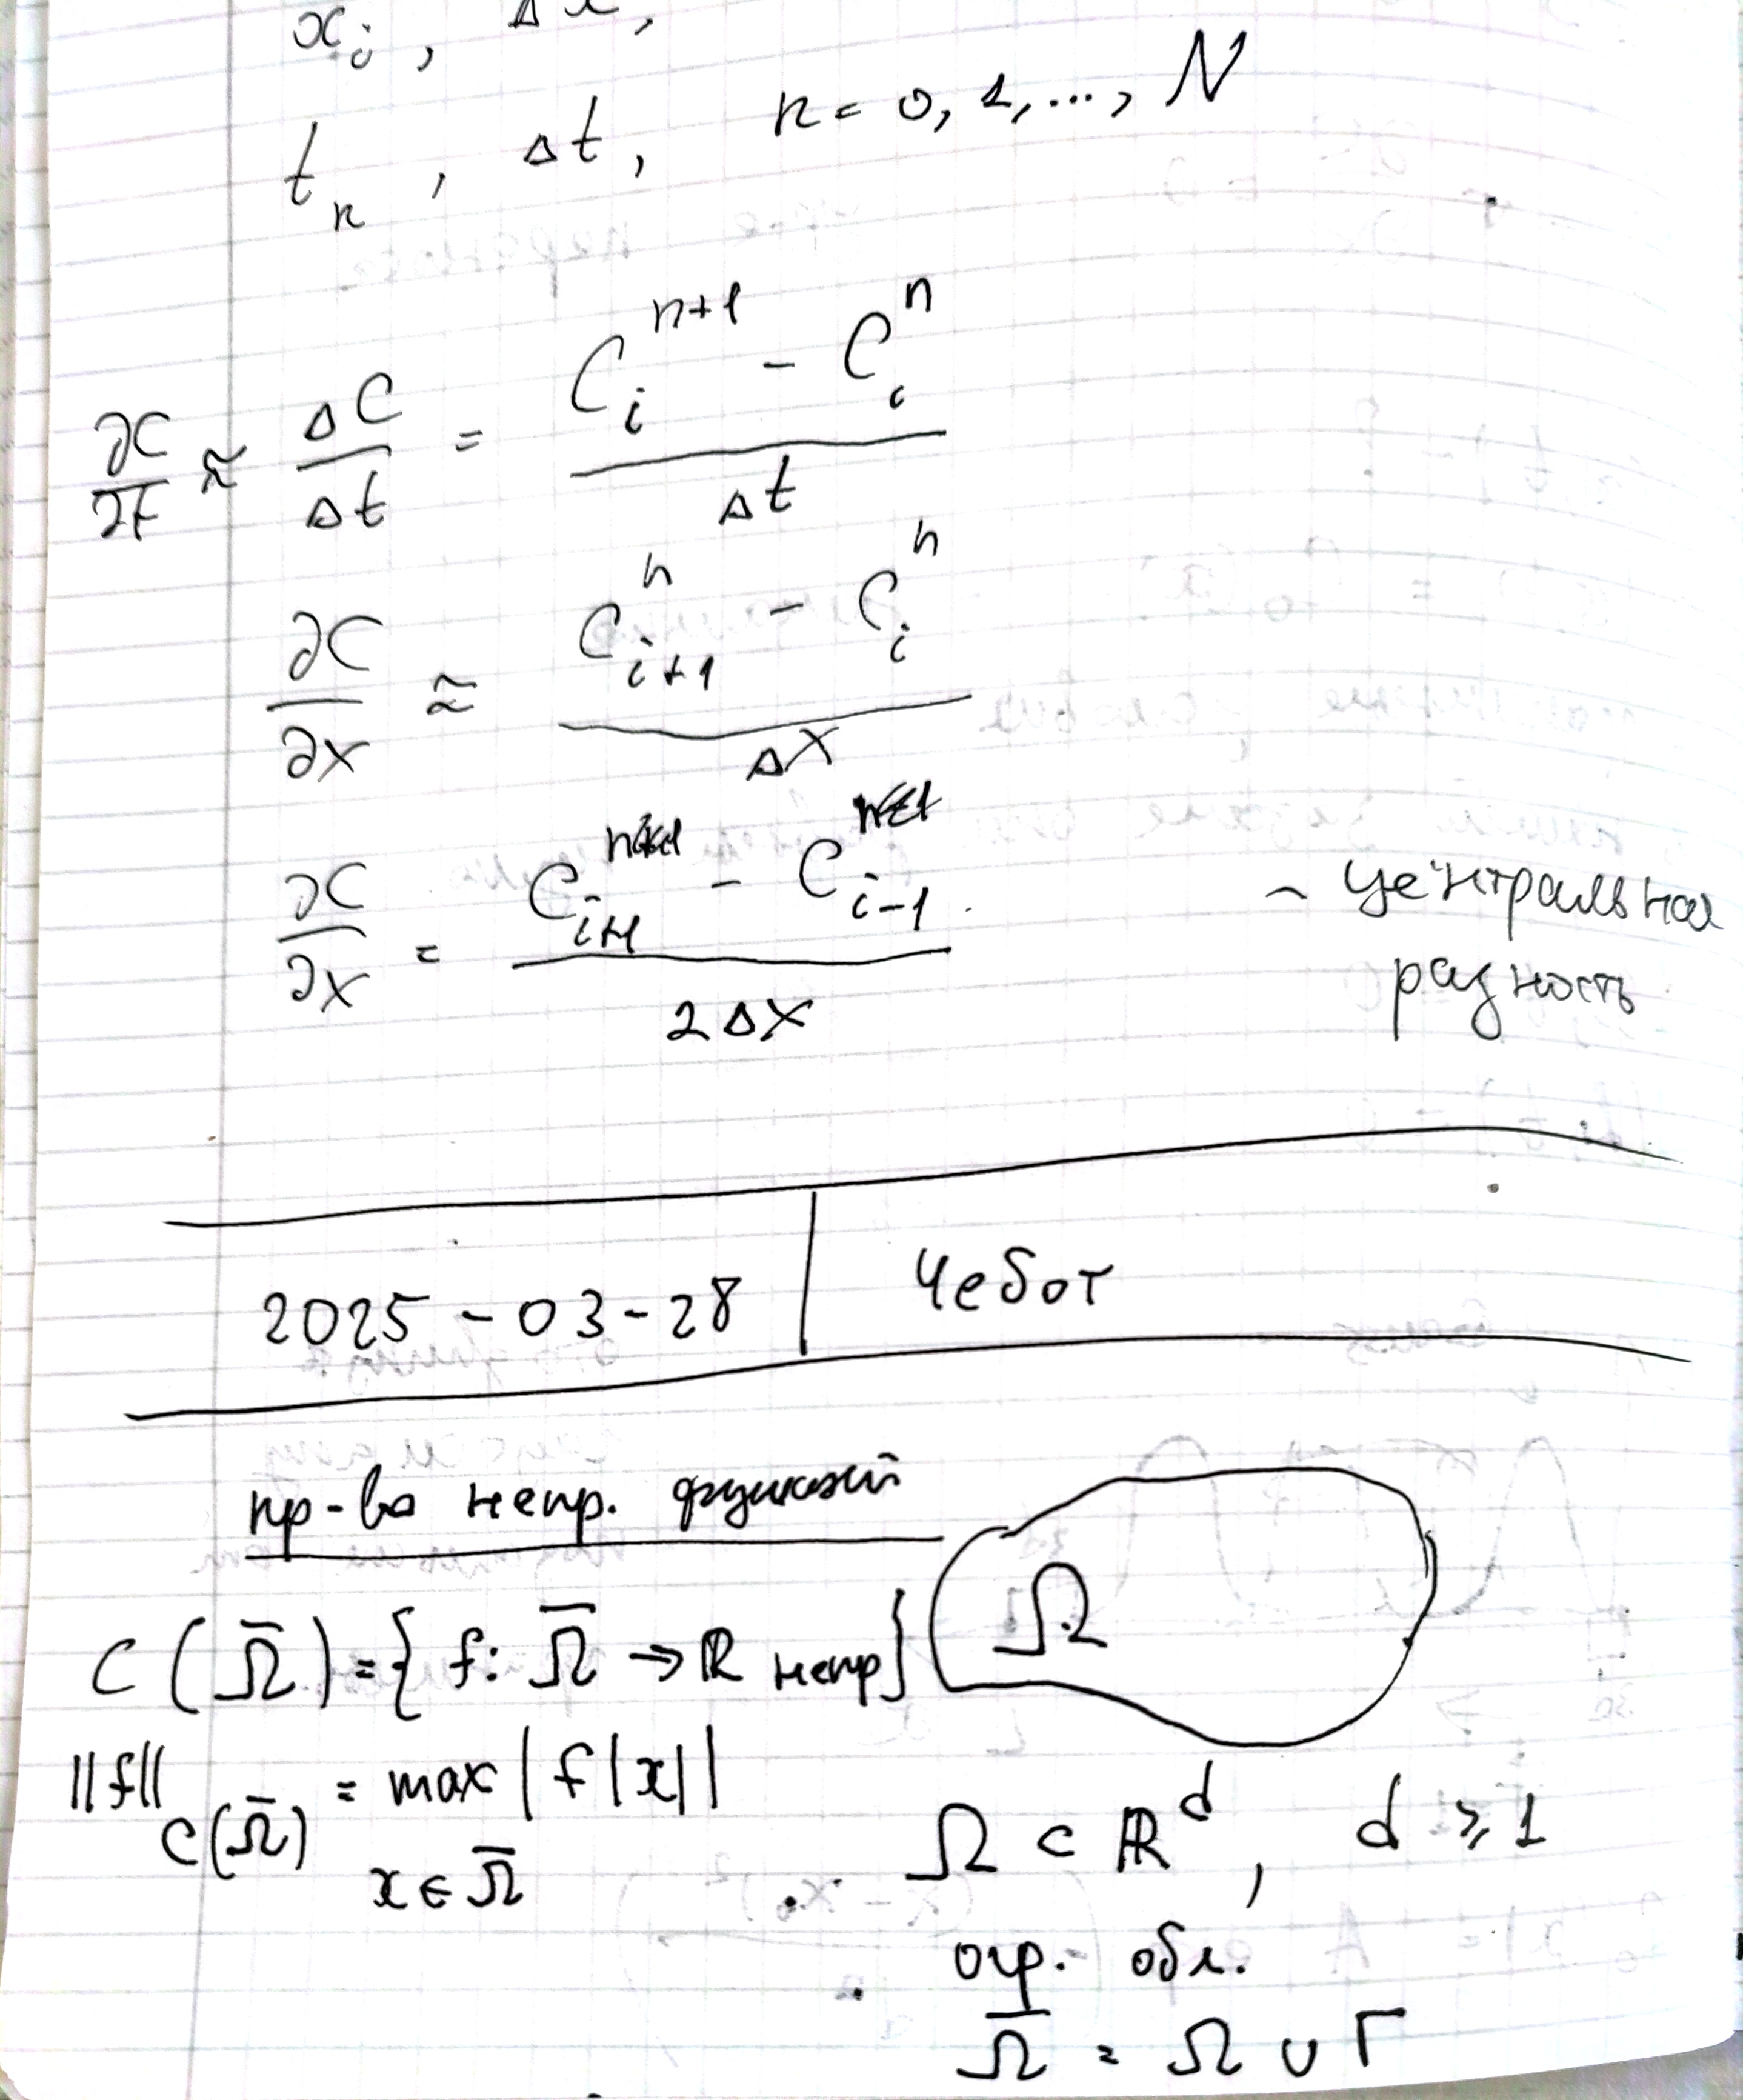 x_i, Δx,
t_n, Δt, n = 0, 1, ..., N
∂C/∂t ≈ ΔC/Δt = (C_i^{n+1} - C_i^n)/Δt
∂C/∂x ≈ (C_{i+1}^n - C_i^n)/Δx
∂C/∂x = (C_{i+1}^n - C_{i-1}^n)/(2Δx) - центральная
разность
2025-03-28 | Чебот
пр-во непр. функций
Ω
C(Ω̅) = { f: Ω̅ → ℝ непр}
||f||_{C(Ω̅)} = max |f|x||
x ∈ Ω̅
Ω ⊂ ℝ^d, d ⩾ 1
огр. обл.
Ω̅ = Ω ∪ Γ